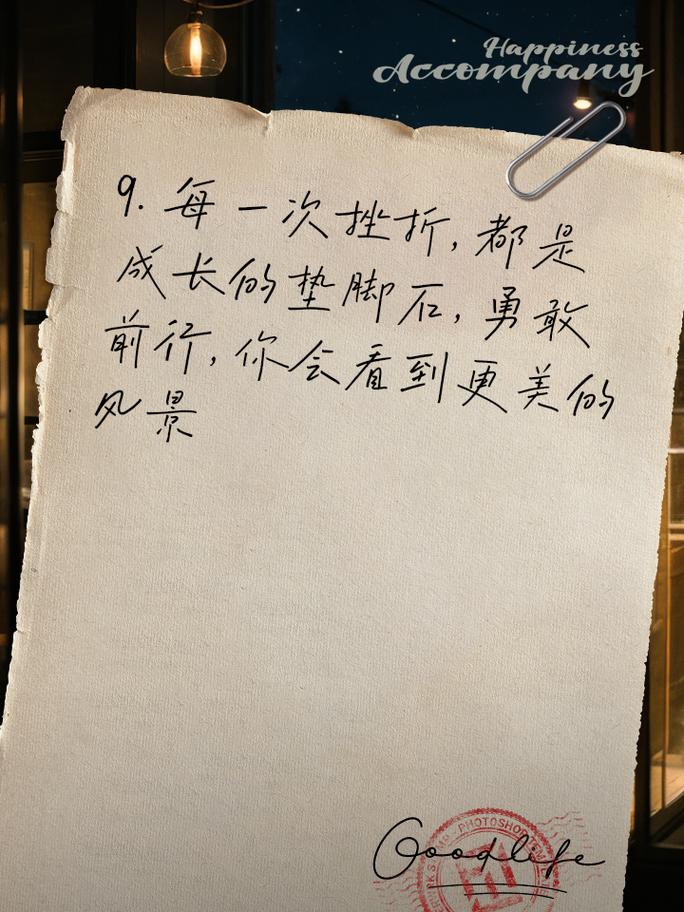 Happiness
Accompany
9. 每一次挫折,都是
成长的垫脚石,勇敢
前行,你会看到更美的
风景
PHOTOSHOP
Goodlife